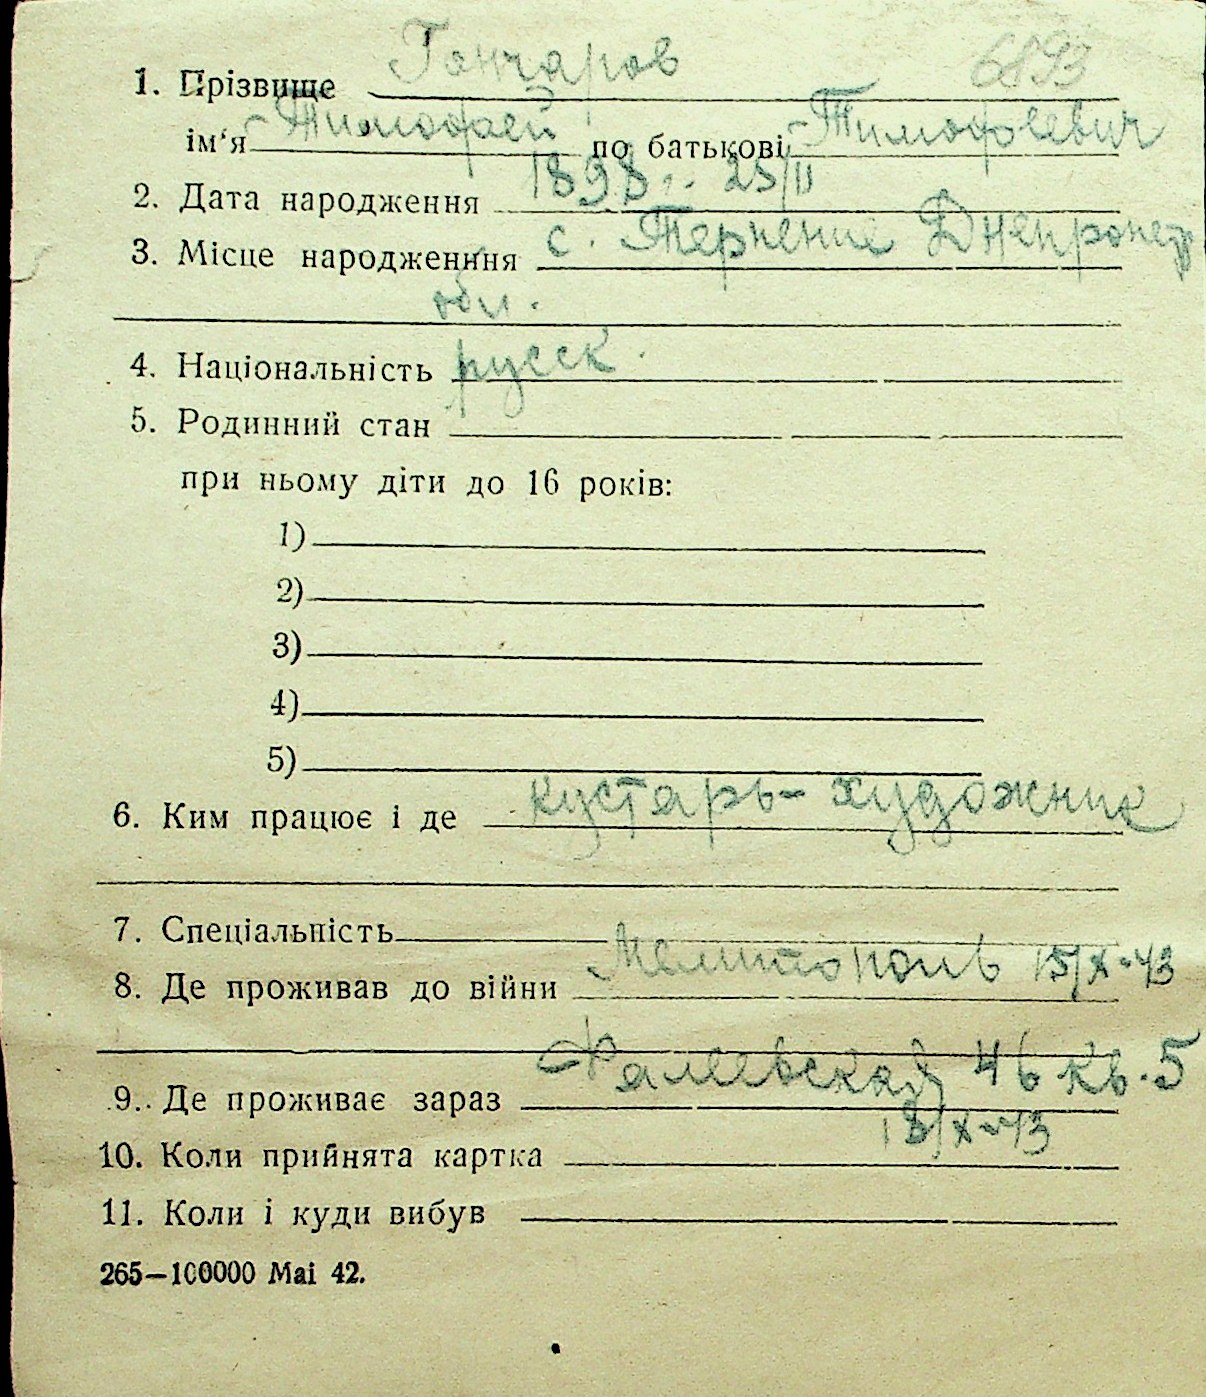 6893
1. Прізвище Гончаров
ім'я Тимофей по батькові Тимофеевич
2. Дата народження 1898 .. 25/II
3. Місце народженння с. Терпение Днепропет
обл.
4. Національність русск.
5. Родинний стан
при ньому діти до 16 років:
1)
2)
3)
4)
5)
6. Ким працює і де кустарь-художник
7. Спеціальність
8. Де проживав до війни Мелитополь 15/X-43
9. Де проживає зараз Фалеевская 46 кв. 5
10. Коли прийнята картка 18/X-43
11. Коли і куди вибув
265—100000 Mai 42.